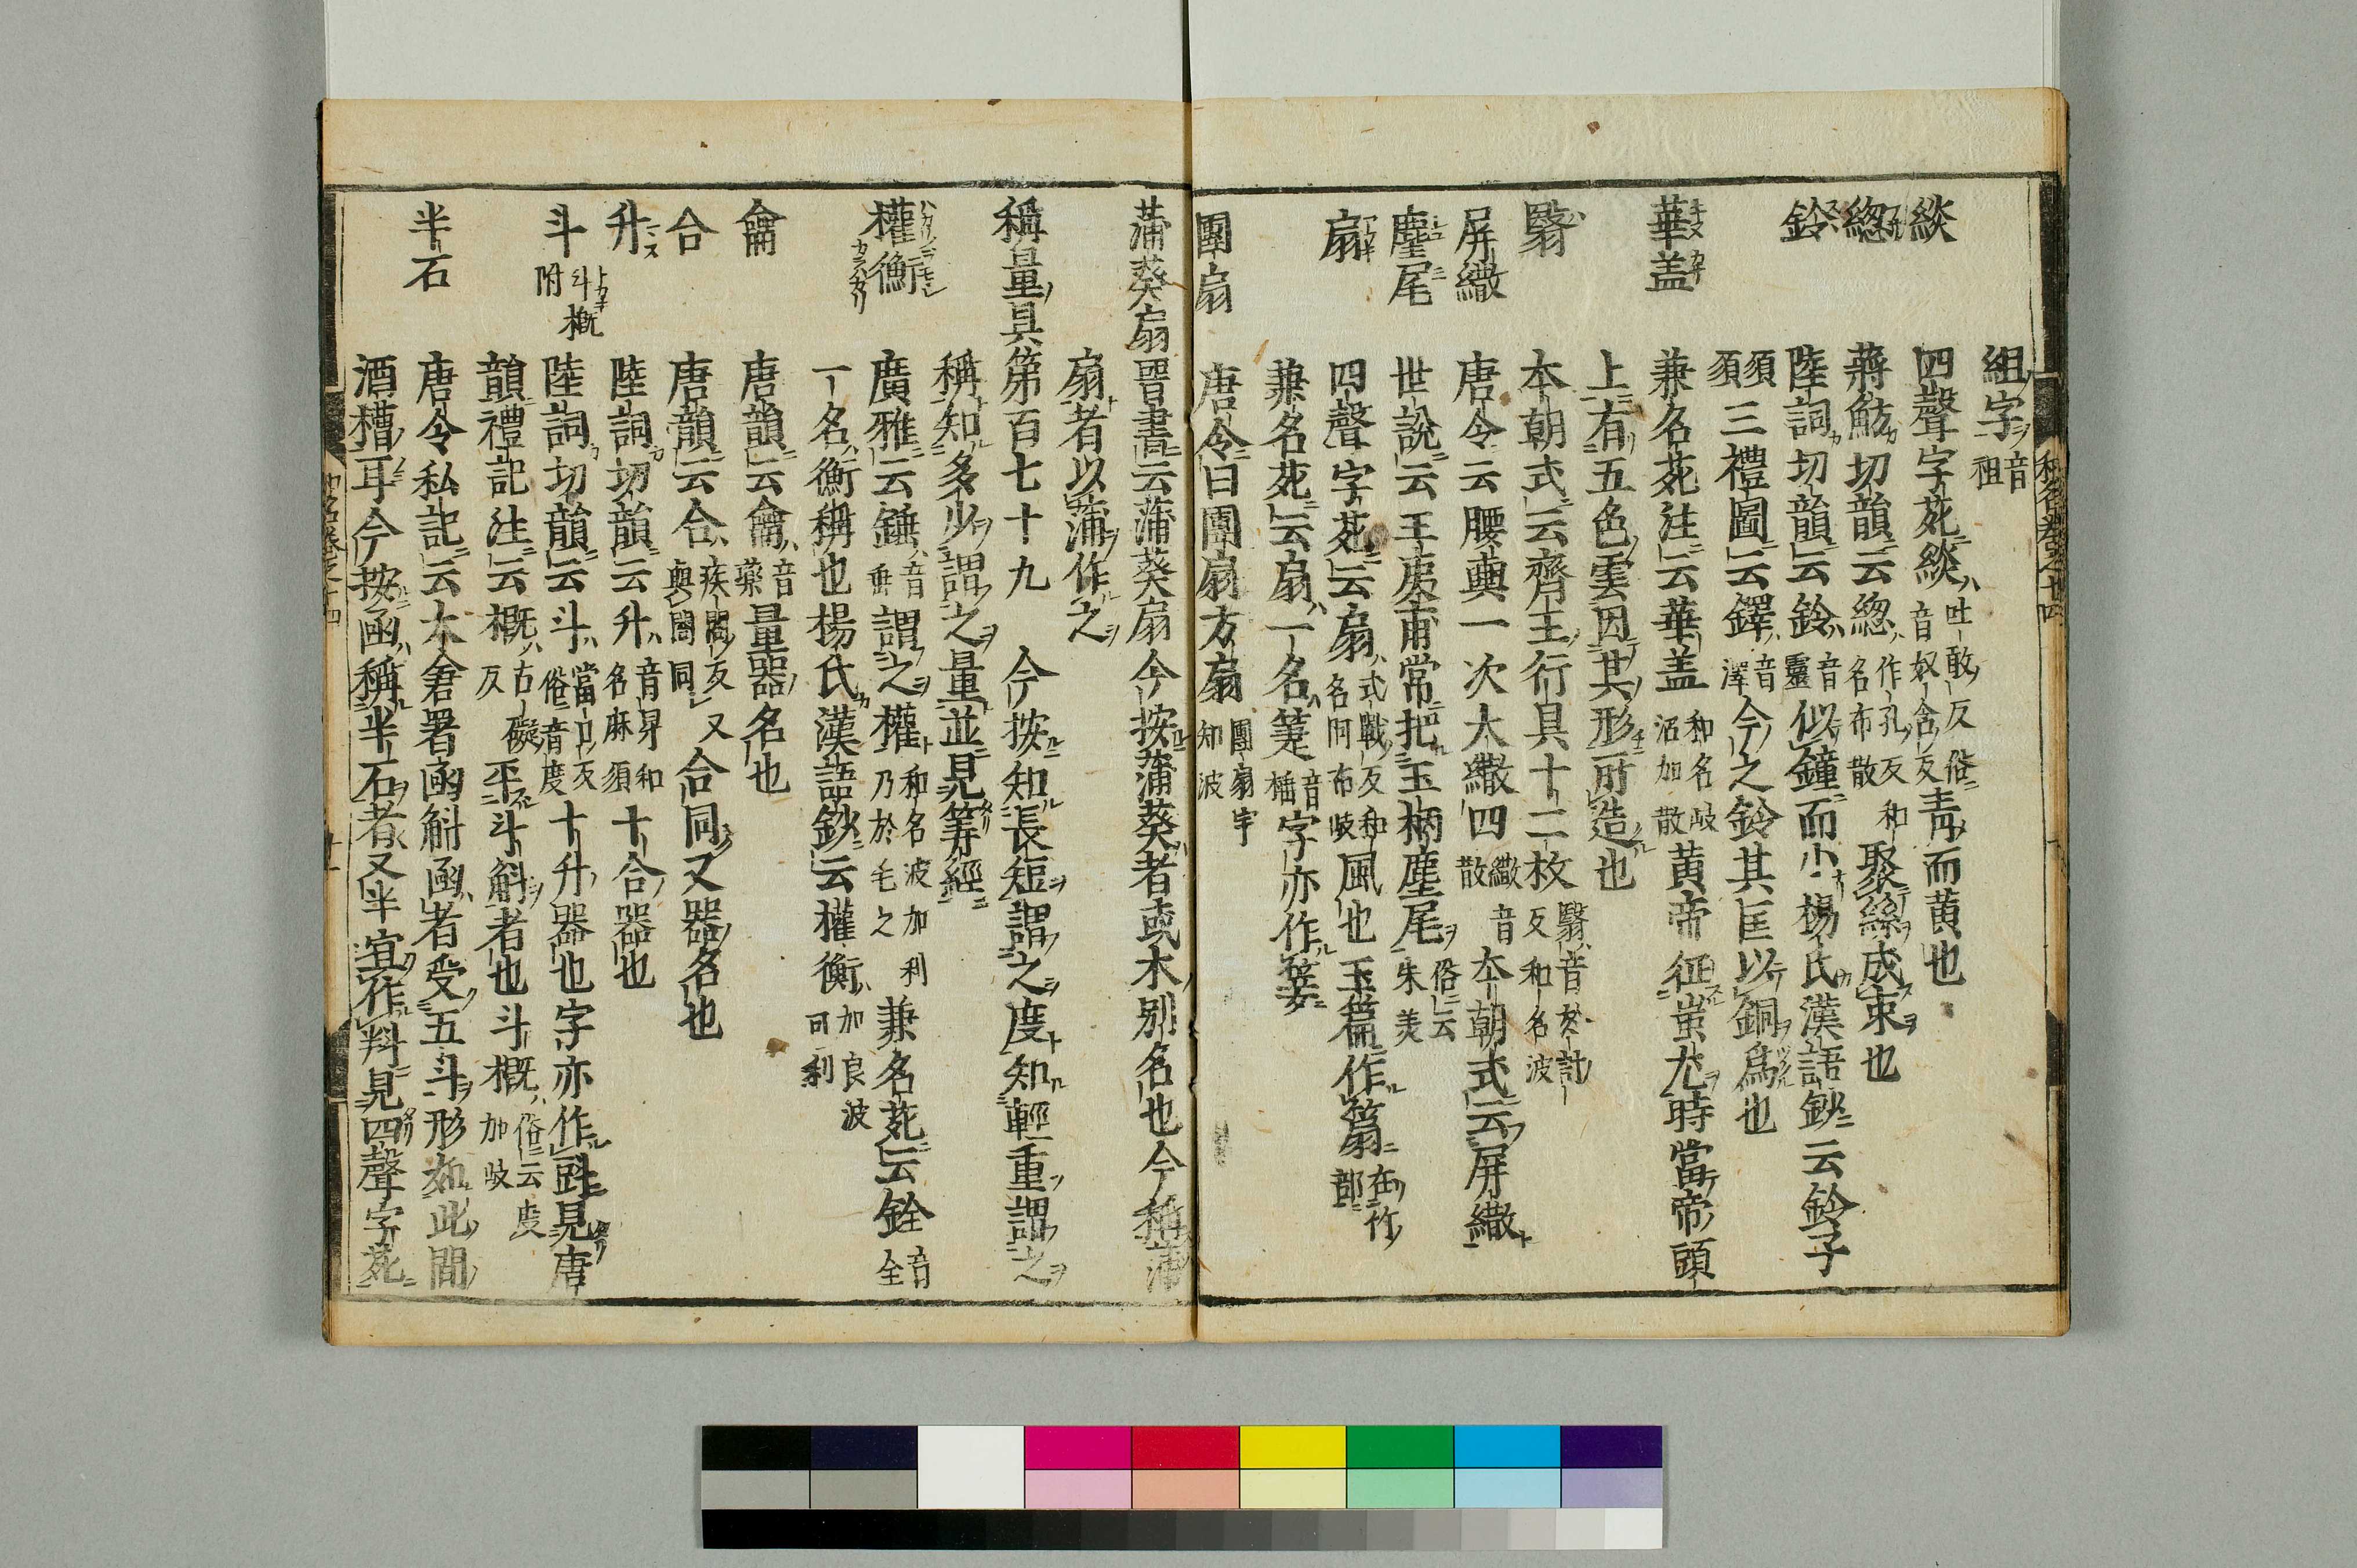 組字音祖
緂 四聲字苑緂吐敢反俗音奴含反青而黄也
總 蔣魴切韻云總作孔反和名布散聚絲成束也
鈴 陸詞切韻云鈴音靈似鐘而小楊氏漢語鈔云鈴子
須須三禮圖云鐸音澤今之鈴其匡以銅爲也
華盖 兼名苑注云華盖和名岐沼加散黄帝征蚩尤時當帝頭
上有五色雲因其形所造也
翳 本朝式云齊王行具十二枚翳音於計反和名波
屏繖 唐令云腰輿一次大繖四繖音散本朝式云屏繖
麈尾 世說云王夷甫常把玉柄麈尾俗云朱美
扇 四聲字苑云扇式戰反和名阿布岐風也玉篇作䈉在竹部
兼名苑云扇一名箑音字亦作䈉
團扇 唐令曰團扇方扇團扇宇知波
蒲葵扇 晋書云蒲葵扇今按蒲葵者或木別名也今稱蒲
扇者以蒲作之
稱量具第百七十九 今按知長短謂之度知輕重謂之
稱知多少謂之量並見筭經
權衡 廣雅云錘音垂謂之權和名波加利乃於毛之兼名苑云銓音全
一名衡稱也楊氏漢語鈔云權衡加良波可利
龠 唐韻云龠音藥量器名也
合 唐韻云合疾閤反與閤同又合同又器名也
升 陸詞切韻云升音昇和名麻須十合器也
斗 斗概附 陸詞切韻云斗當口反俗音度十升器也字亦作㪷見唐
韻禮記注云概古礙反平斗斛者也斗概俗云度加岐
半石 唐令私記云大倉署函斛函者受五斗形如此間
酒糟耳今按函稱半石者又半宜作料見四聲字苑